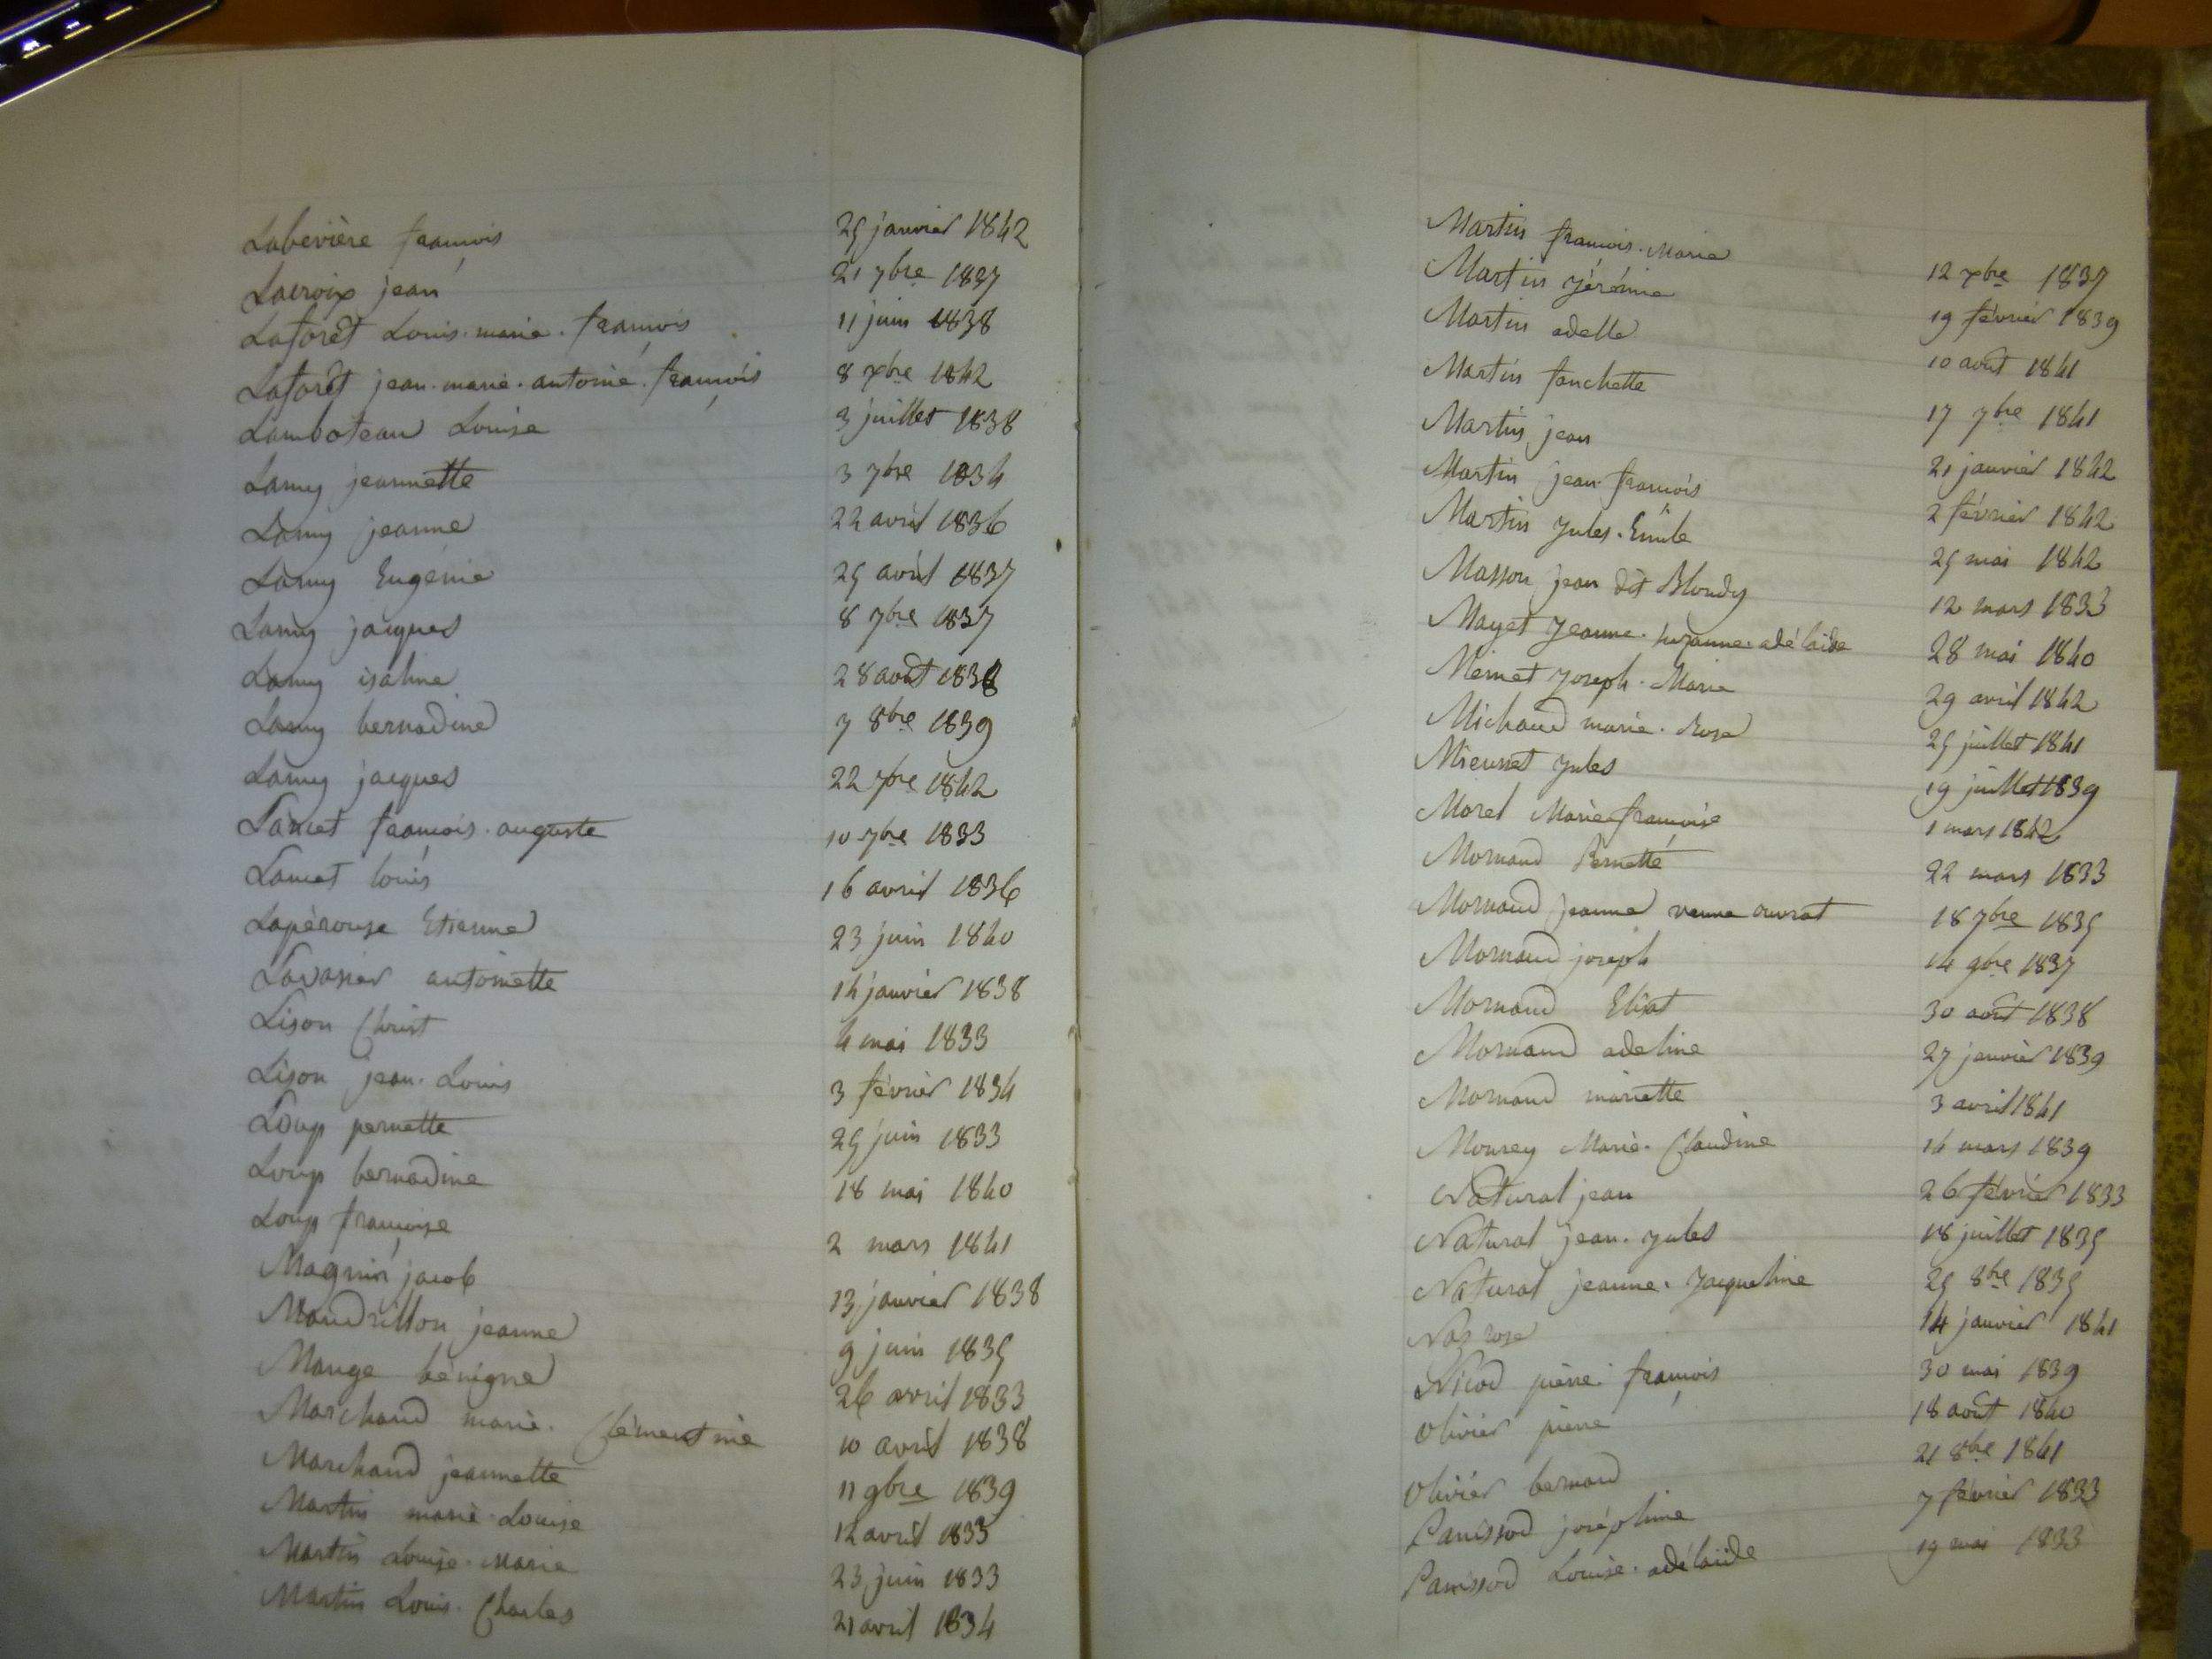 Labevière françois 25 janvier 1842
Lacroix jean 21 7bre 1837
Laforêt Louis. marie. françois 11 juin 1838
Laforêt jean. marie. antoine. françois 8 xbre 1842
Lamboteau Louise 3 juillet 1838
Lamy jeannette 3 7bre 1834
Lamy jeanne 22 avril 1836
Lamy Eugénie 25 avril 1837
Lamy jacques 8 7bre 1837
Lamy isaline 28 août 1838
Lamy bernadine 7 8bre 1839
Lamy jacques 22 7bre 1842
Lancet françois. auguste 10 7bre 1833
Lancet louis 16 avril 1836
Lapérouse Etienne 23 juin 1840
Lavanier antoinette 14 janvier 1838
Lison Christ 4 mai 1833
Lison jean. Louis 3 février 1834
Loup pernette 25 juin 1833
Loup bernadine 18 mai 1840
Loup françoise 2 mars 1841
Magnin jacob 13 janvier 1838
Mandrillon jeanne 9 juin 1835
Mange bénigne 26 avril 1833
Marchand marie. Clémentine 10 avril 1838
Marchand jeannette 11 9bre 1839
Martin marie. Louise 12 avril 1833
Martin Louise. Marie 23 juin 1833
Martin Louis. Charles 21 avril 1834
Martin françois. Marie 12 xbre 1837
Martin jérémie 19 février 1839
Martin adelle 10 août 1841
Martin fanchette 17 7bre 1841
Martin jean 21 janvier 1842
Martin jean. françois 2 février 1842
Martin jules. Emile 25 mai 1842
Masson jean dit Blondy 12 mars 1833
Mayet jeanne. suzanne. adélaide 28 mai 1840
Mermet joseph. Marie 29 avril 1842
Michaud marie. Rose 25 juillet 1841
Mieusset jules 19 juillet 1839
Morel Marie françoise 1 mars 1842
Mornand Pernette 22 mars 1833
Mornand jeanne veuve ouvrat 18 7bre 1835
Mornand joseph 14 9bre 1837
Mornand Elisat 30 août 1838
Mornand adeline 27 janvier 1839
Mornand mariette 3 avril 1841
Mourey Marie. Claudine 14 mars 1839
Natural jean 26 février 1833
Natural jean. jules 18 juillet 1835
Natural jeanne. jacqueline 25 8bre 1835
Naz rose 14 janvier 1841
Nicod pierre. françois 30 mai 1839
Olivier pierre 18 août 1840
Olivier bernard 21 8bre 1841
Panissod joséphine 7 février 1833
Panissod Louise. adélaïde 19 mai 1833